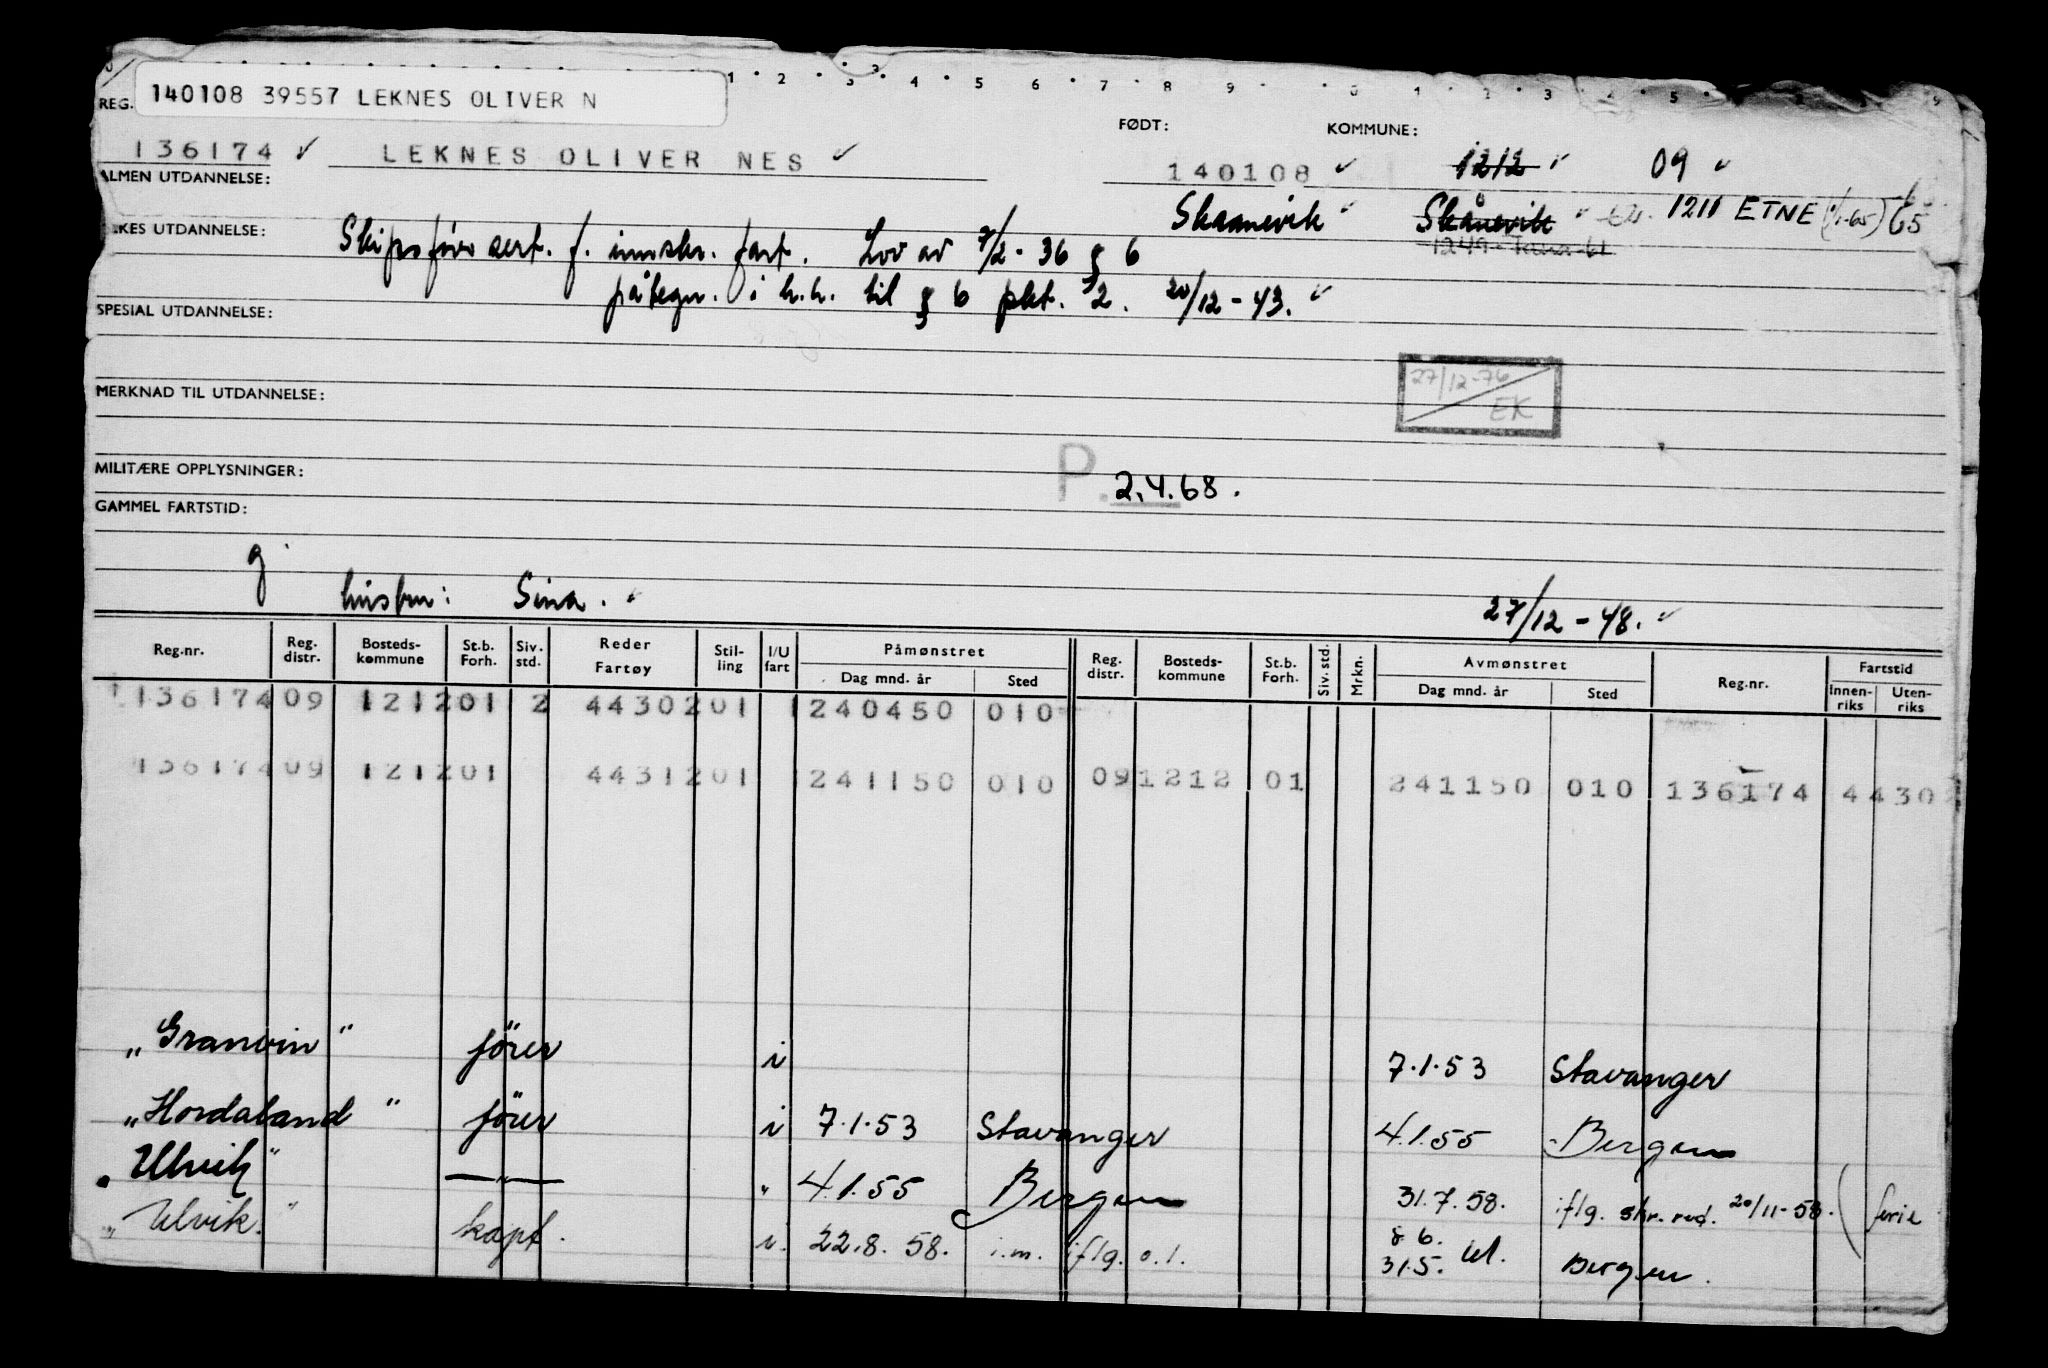 1 2 3 4 5 6 7 8 9 0 1 2 3 4 5 9
REG. 140108 39557 LEKNES OLIVER N
FØDT: KOMMUNE:
136174 ✓ LEKNES OLIVER NES ✓ 140108 ✓ 1212 ✓ 09 ✓
ALMEN UTDANNELSE: Skaanevik ✓ Skånevik ✓ 1211 ETNE (1/1-65) 65
1249 - Fana - 61
KES UTDANNELSE: Skipsfører sert. f. innskr. fart. Lov av 7/2-36 § 6
påtegn. i h.h. til § 6 pkt. 2. 20/12-43. ✓
SPESIAL UTDANNELSE:
27/12-76
EK
MERKNAD TIL UTDANNELSE:
MILITÆRE OPPLYSNINGER: P. 2.4.68.
GAMMEL FARTSTID:
g
hustru: Sina. ✓ 27/12-48. ✓
Reg.nr. Reg. distr. Bosteds-kommune St.b. Forh. Siv. std. Reder Fartøy Stil-ling I/U fart Påmønstret Dag mnd. år Sted Reg. distr. Bosteds-kommune St.b. Forh. Siv. std. Mrkn. Avmønstret Dag mnd. år Sted Reg.nr. Fartstid Innen-riks Uten-riks
136174 09 1212 01 2 4430 201 1 240450 010
136174 09 1212 01 4431 201 241150 010 09 1212 01 241150 010 136174 4430
„Granvin" förer i 7.1.53 Stavanger
„Hordaland" förer i 7.1.53 Stavanger 4.1.55 Bergen
„Ulvik" —"— " 4.1.55 Bergen 31.7.58. iflg. skr. red. 20/11-58. (ferie
„Ulvik." kapt. i. 22.8.58. i.m. iflg. o.l. 8.6. 31.5. 61. Bergen.